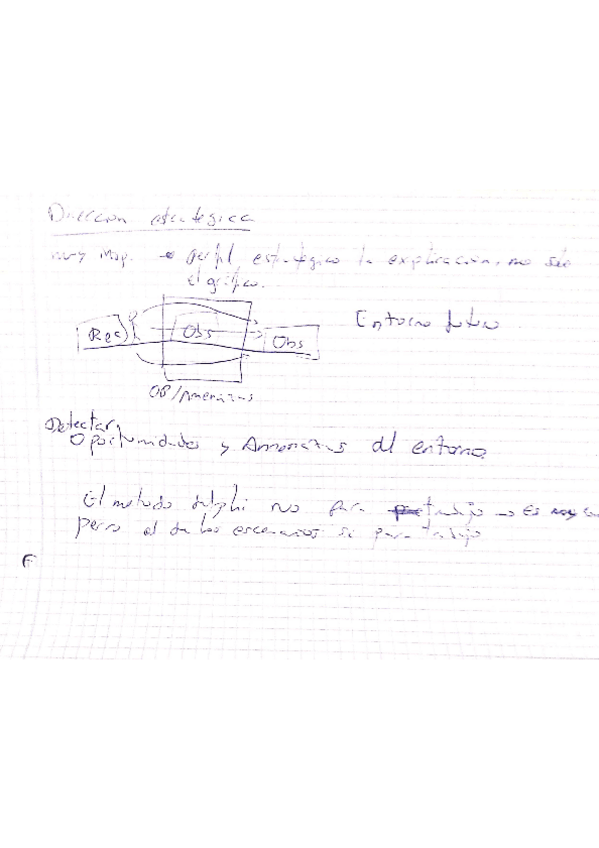 Dirección estratégica
muy imp. → perfil estratégico la explicación, no sólo
el gráfico.
Rec Obs Obs Entorno futuro
OP/Amenazas
Detectar
Oportunidades y Amenazas del entorno
El metodo delphi no para trabajo → Es
pero el de los escenarios si para trabajo
F